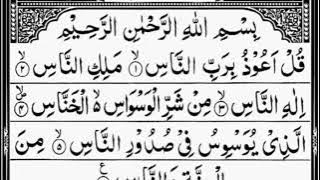 بِسْمِ اللهِ الرَّحْمٰنِ الرَّحِيْمِ
قُلْ اَعُوْذُ بِرَبِّ النَّاسِ ۙ﴿۱﴾ مَلِكِ النَّاسِ ۙ﴿۲﴾
اِلٰهِ النَّاسِ ۙ﴿۳﴾ مِنْ شَرِّ الْوَسْوَاسِ ۙ۬ الْخَنَّاسِ ۪ۙ﴿۴﴾
الَّذِيْ يُوَسْوِسُ فِيْ صُدُوْرِ النَّاسِ ۙ﴿۵﴾ مِنَ
الْجِنَّةِ وَالنَّاسِ